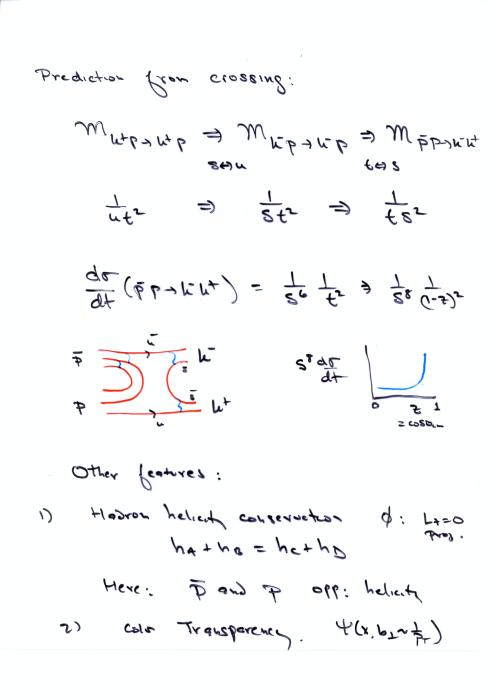 Prediction from crossing:
M K⁺p→K⁺p ⇒ M K⁻p→K⁻p ⇒ M p̄p→K⁻K⁺
s↔u t↔s
1/ut² ⇒ 1/st² ⇒ 1/ts²
dσ/dt (p̄p→K⁻K⁺) = 1/s⁶ 1/t² ⇒ 1/s⁸ 1/(1-z)²
p̄ ū K⁻ s
s̄
p u K⁺
s⁸ dσ/dt
0 z 1
= cosθcm
Other features:
1) Hadron helicity conservation ϕ: Lz=0
proj.
hA + hB = hC + hD
Here: p̄ and p opp: helicity
2) Color Transparency. Ψ(x, b⊥~1/pT)